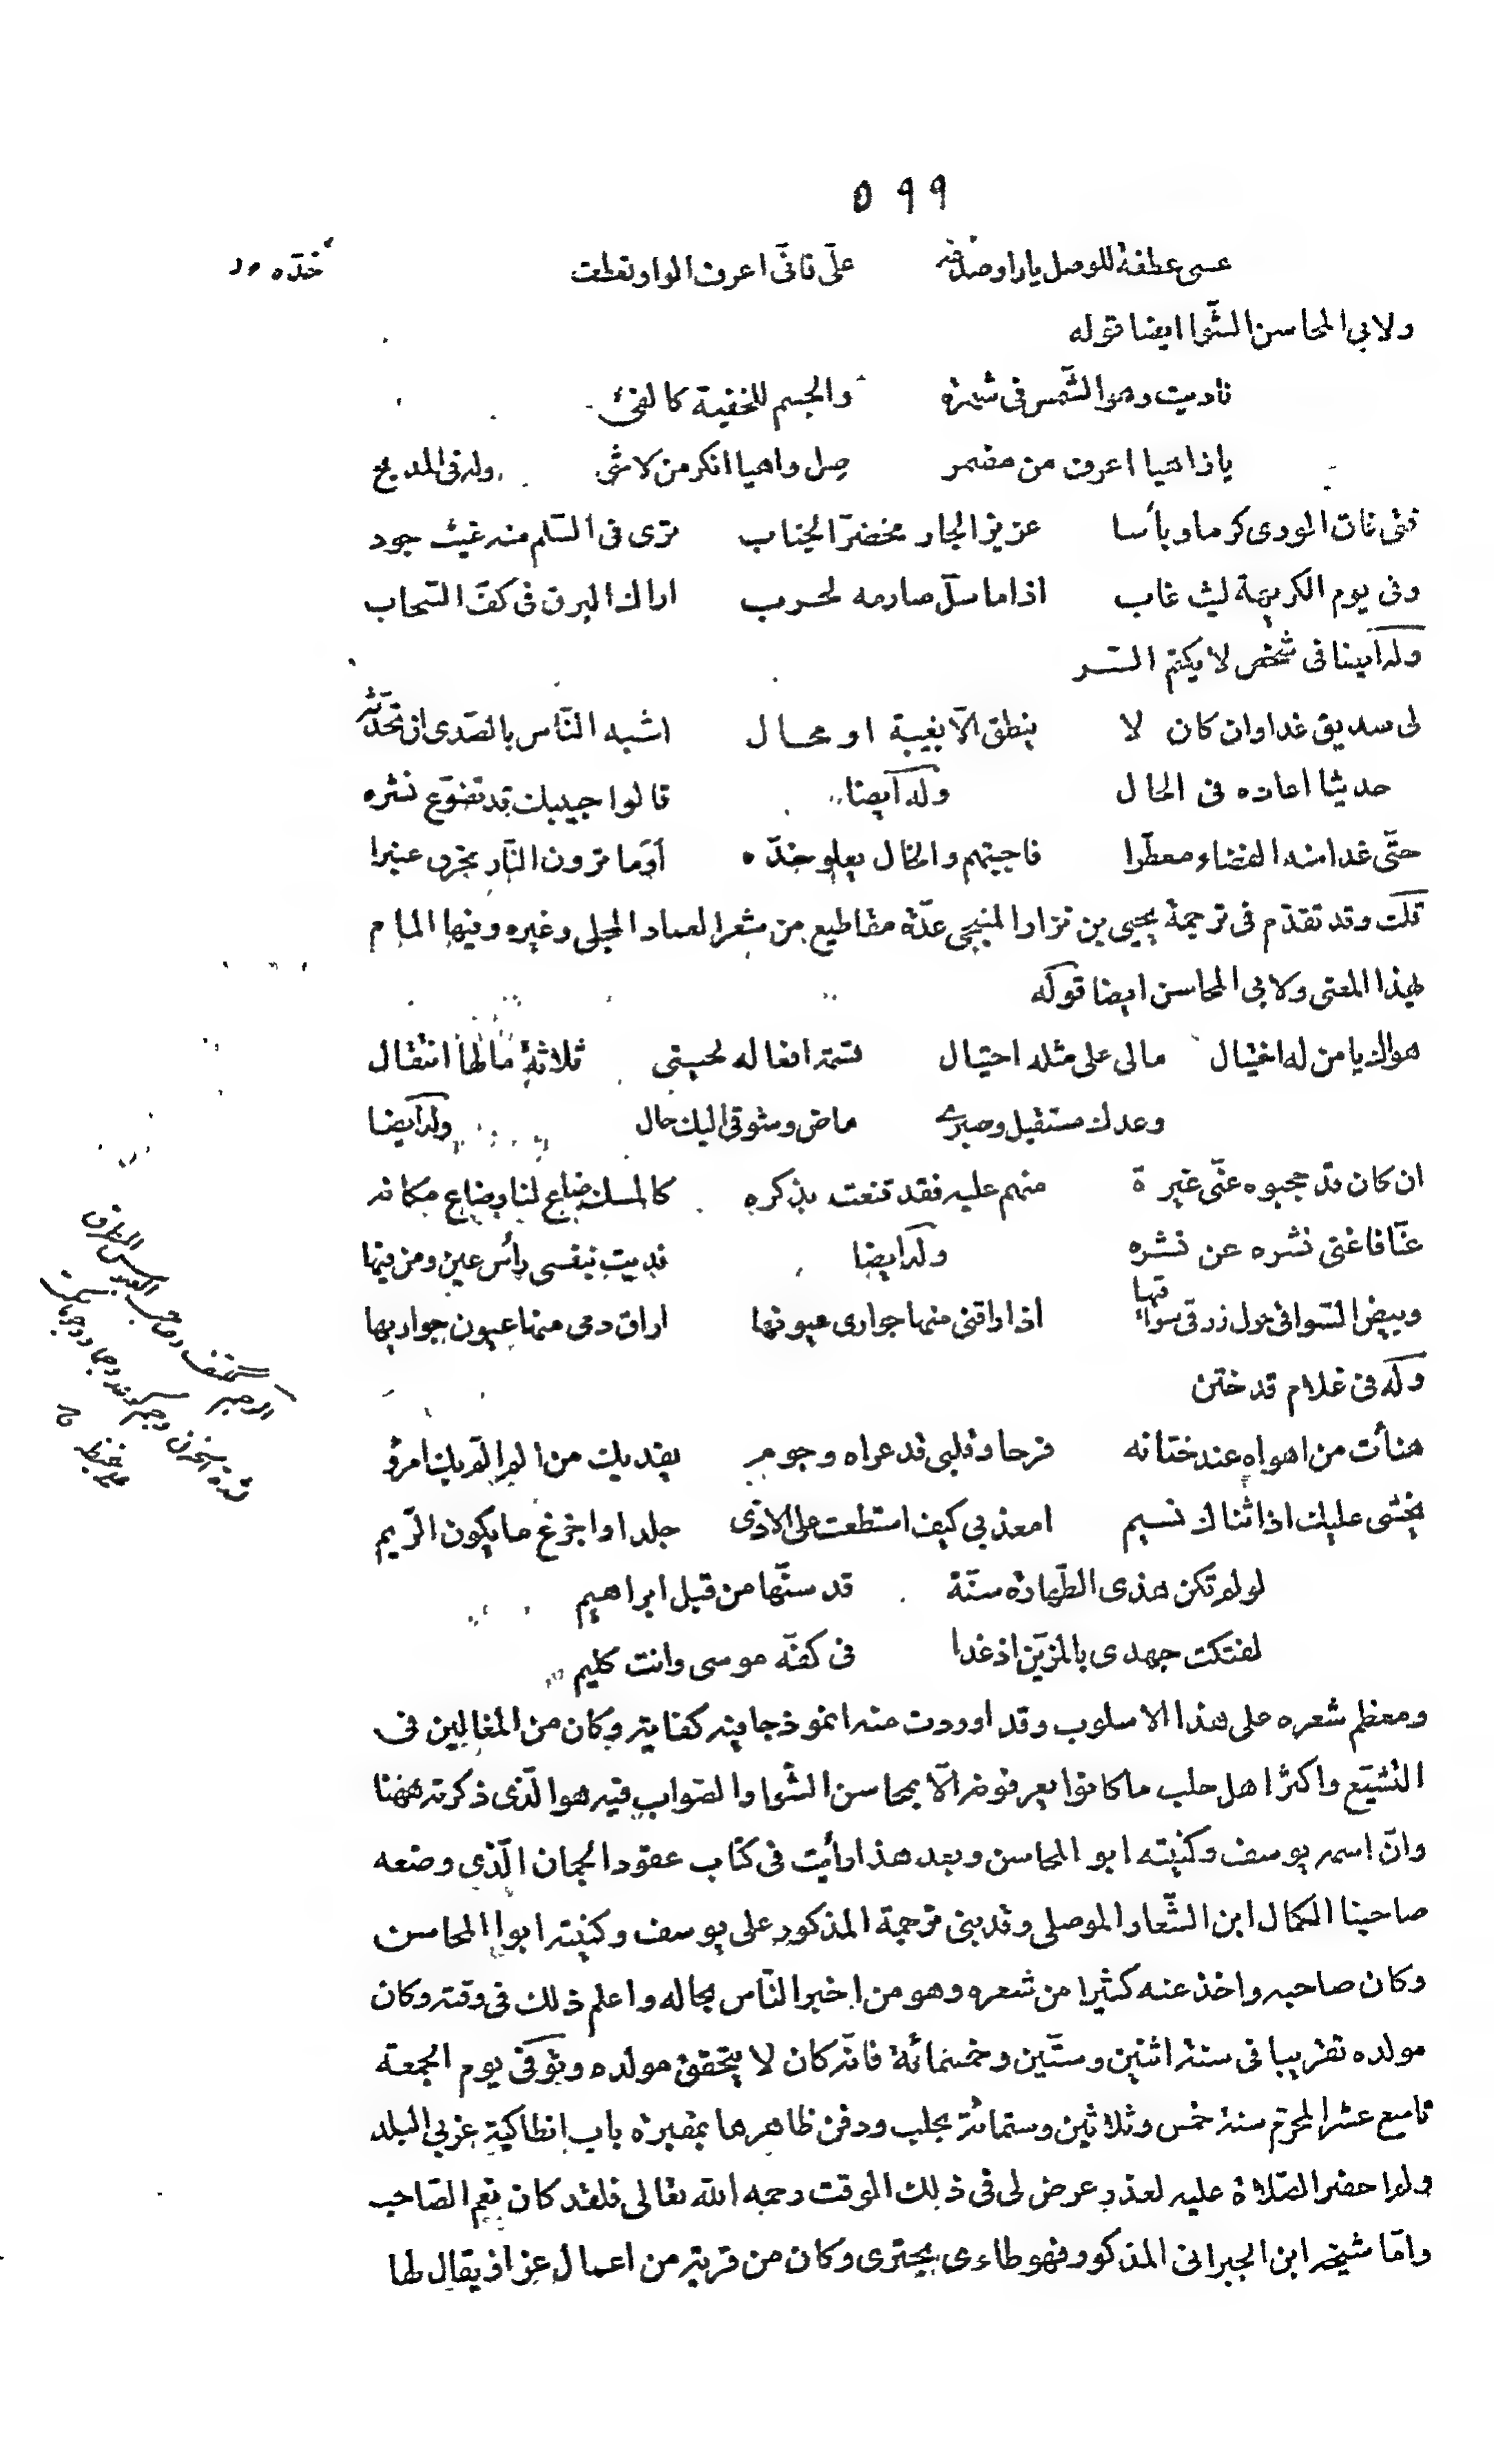 ٥٩٩
عسى عطفة للوصل ياواو صدغه علىّ فانّى اعرف الواو تعطف
خدّه
ولابى المحاسن الشّوا ايضا قوله
ناديت وهو الشّمس فى شهرة والجسم للخفية كالفئ
ياذاهيا اعرف من مضمر صل واهيا انكر من لاشئ وله فى المديح
فتى فاق الورى كرما وبأسا عزيز الجار مخضرّ الجناب ترى فى السّلم منه غيث جود
وفى يوم الكريهة ليث غاب اذا ما سلّ صارمه لحرب اراك البرق فى كفّ السّحاب
وله ايضا فى شخص لا يكتم السّر
لى صديق غدا وان كان لا ينطق الّا بغيبة او محال اشبه النّاس بالصّدى ان تحدّثه
حديثا اعاده فى الحال وله ايضا قالوا حبيبك قد تضوّع نشره
حتّى غدا منه الفضاء معطّرا فاجبتهم والخال يعلو خدّه أوما ترون النّار تحرق عنبرا
قلت وقد تقدّم فى ترجمة يحيى بن نزار المنبجى عدّة مقاطيع من شعر العماد المحلى وغيره وفيها المام
بهذا المعنى ولابى المحاسن ايضا قوله
هواك يا من له اختيال مالى على مثله احتيال قسمة افعاله لحينى ثلاثة مالها انتقال
وعدك مستقبل وصبرى ماض وشوقى اليك حال وله ايضا
ان كان قد حجبوه عنّى غيرة منهم عليه فقد قنعت بذكره كالمسك ضاع لنا وضاع مكانه
عنّا فاغنى نشره عن نشره وله ايضا فديت بنفسى رأس عين ومن فيها
وبيض السّواقى حول زرق سواقيها اذا راقنى منها جوارى عيونها اراق دمى منها عيون جواريها
وله فى غلام قد ختن
هنأت من اهواه عند ختانه فرحا وقلبى قد عراه وجوم يفديك من الم الم بك امرؤ
يخشى عليك اذا ثناك نسيم امعذبى كيف استطعت على الاذى جلدا واجزع ما يكون الرّيم
لو لم تكن هذى الطّهارة سنّة قد سنّها من قبل ابراهيم
لفتكت جهدى بالمزيّن اذ غدا فى كفّه موسى وانت كليم
ومعظم شعره على هذا الاسلوب وقد اوردت منه انموذجا فيه كفاية وكان من المغالين فى
التشيّع واكثر اهل حلب ما كانوا يعرفونه الّا بمحاسن الشّوا والصّواب فيه هو الّذى ذكرته ههنا
وانّ اسمه يوسف وكنيته ابو المحاسن وبعد هذا رأيت فى كتاب عقود الجمان الّذى وضعه
صاحبنا الكمال ابن الشّعار الموصلى وقد بنى ترجمة المذكور على يوسف وكنيته ابوا المحاسن
وكان صاحبه واخذ عنه كثيرا من شعره وهو من اخبر النّاس بحاله واعلم ذلك فى وقته وكان
مولده تقريبا فى سنة اثنين وستّين وخمسمائة فانّه كان لا يتحقق مولده وتوفى يوم الجمعة
تاسع عشر المحرّم سنة خمس وثلاثين وستمائة بحلب ودفن ظاهرها بمقبرة باب انطاكية غربى البلد
ولم احضر الصّلاة عليه لعذر عرض لى فى ذلك الوقت رحمه اللّه تعالى فلقد كان نعم الصّاحب
وامّا شيخه ابن الجبرانى المذكور فهو طاءى بحترى وكان من قرية من اعمال عزاز يقال لها